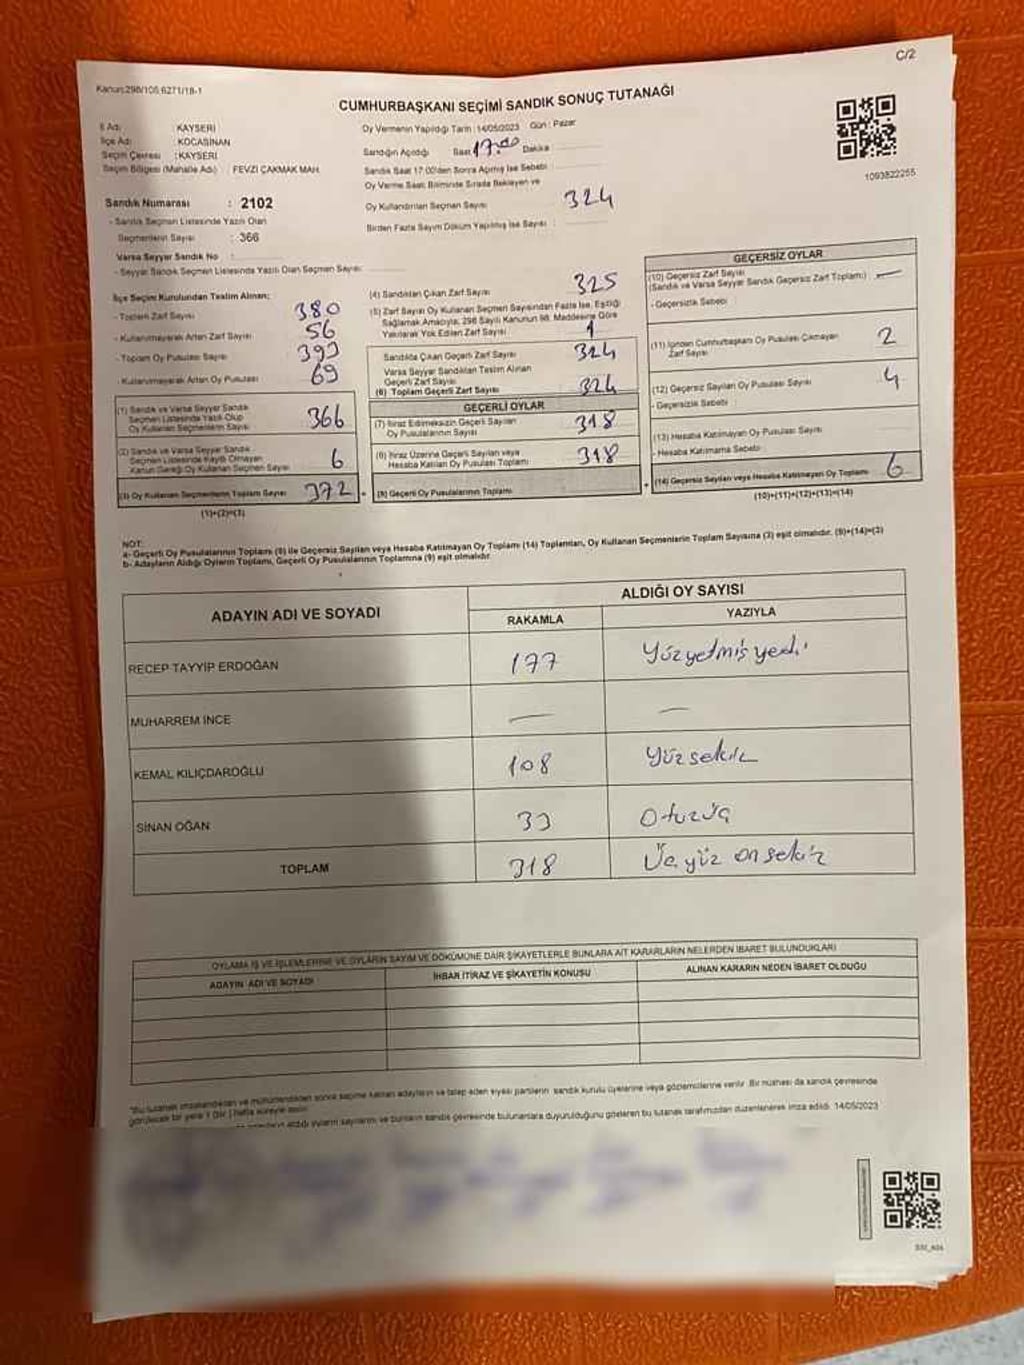 C/2
Kanun:298/105,6271/18-1
CUMHURBAŞKANI SEÇİMİ SANDIK SONUÇ TUTANAĞI
İl Adı : KAYSERİ
İlçe Adı : KOCASİNAN
Seçim Çevresi : KAYSERİ
Seçim Bölgesi (Mahalle Adı) FEVZİ ÇAKMAK MAH.
Sandık Numarası : 2102
- Sandık Seçmen Listesinde Yazılı Olan
Seçmenlerin Sayısı : 366
Varsa Seyyar Sandık No :
- Seyyar Sandık Seçmen Listesinde Yazılı Olan Seçmen Sayısı
Oy Vermenin Yapıldığı Tarih : 14/05/2023 Gün : Pazar
Sandığın Açıldığı Saat 17.00 Dakika
Sandık Saat 17:00'den Sonra Açılmış İse Sebebi :
Oy Verme Saati Bitiminde Sırada Bekleyen ve
Oy Kullandırılan Seçmen Sayısı 324
Birden Fazla Sayım Döküm Yapılmış İse Sayısı :
1093822255
İlçe Seçim Kurulundan Teslim Alınan;
- Toplam Zarf Sayısı 380
- Kullanılmayarak Artan Zarf Sayısı 56
- Toplam Oy Pusulası Sayısı 393
- Kullanılmayarak Artan Oy Pusulası 69
(1) Sandık ve Varsa Seyyar Sandık
Seçmen Listesinde Yazılı Olup
Oy Kullanan Seçmenlerin Sayısı 366
(2) Sandık ve Varsa Seyyar Sandık
Seçmen Listesinde Kayıtlı Olmayan
Kanun Gereği Oy Kullanan Seçmen Sayısı 6
(3) Oy Kullanan Seçmenlerin Toplam Sayısı 372
(1)+(2)=(3)
(4) Sandıktan Çıkan Zarf Sayısı 325
(5) Zarf Sayısı Oy Kullanan Seçmen Sayısından Fazla İse, Eşitliği
Sağlamak Amacıyla, 298 Sayılı Kanunun 98. Maddesine Göre
Yakılarak Yok Edilen Zarf Sayısı 1
Sandıkta Çıkan Geçerli Zarf Sayısı 324
Varsa Seyyar Sandıktan Teslim Alınan
Geçerli Zarf Sayısı
(6) Toplam Geçerli Zarf Sayısı 324
GEÇERLİ OYLAR
(7) İtiraz Edilmeksizin Geçerli Sayılan
Oy Pusulalarının Sayısı 318
(8) İtiraz Üzerine Geçerli Sayılan veya
Hesaba Katılan Oy Pusulası Toplamı 318
(9) Geçerli Oy Pusulalarının Toplamı
GEÇERSİZ OYLAR
(10) Geçersiz Zarf Sayısı
(Sandık ve Varsa Seyyar Sandık Geçersiz Zarf Toplamı) —
- Geçersizlik Sebebi
(11) İçinden Cumhurbaşkanı Oy Pusulası Çıkmayan
Zarf Sayısı 2
(12) Geçersiz Sayılan Oy Pusulası Sayısı 4
- Geçersizlik Sebebi
(13) Hesaba Katılmayan Oy Pusulası Sayısı
- Hesaba Katılmama Sebebi
(14) Geçersiz Sayılan veya Hesaba Katılmayan Oy Toplamı 6
(10)+(11)+(12)+(13)=(14)
NOT:
a- Geçerli Oy Pusulalarının Toplamı (9) ile Geçersiz Sayılan veya Hesaba Katılmayan Oy Toplamı (14) Toplamları, Oy Kullanan Seçmenlerin Toplam Sayısına (3) eşit olmalıdır. (9)+(14)=(3)
b- Adayların Aldığı Oyların Toplamı, Geçerli Oy Pusulalarının Toplamına (9) eşit olmalıdır.
ADAYIN ADI VE SOYADI ALDIĞI OY SAYISI
RAKAMLA YAZIYLA
RECEP TAYYİP ERDOĞAN 177 Yüzyetmişyedi
MUHARREM İNCE — —
KEMAL KILIÇDAROĞLU 108 Yüzsekiz
SİNAN OĞAN 33 Otuzüç
TOPLAM 318 Üçyüz onsekiz
OYLAMA İŞ VE İŞLEMLERİNE VE OYLARIN SAYIM VE DÖKÜMÜNE DAİR ŞİKAYETLERLE BUNLARA AİT KARARLARIN NELERDEN İBARET BULUNDUKLARI
ADAYIN ADI VE SOYADI İHBAR İTİRAZ VE ŞİKAYETİN KONUSU ALINAN KARARIN NEDEN İBARET OLDUĞU
"Bu tutanak imzalandıktan ve mühürlendikten sonra seçime katılan adayların ve talep eden siyasi partilerin sandık kurulu üyelerine veya gözlemcilerine verilir. Bir nüshası da sandık çevresinde
görülecek bir yere 1 (bir) hafta süreyle asılır.
oyların sayılarını ve bunların sandık çevresinde bulunanlara duyurulduğunu gösteren bu tutanak tarafımızdan düzenlenerek imza edildi. 14/05/2023